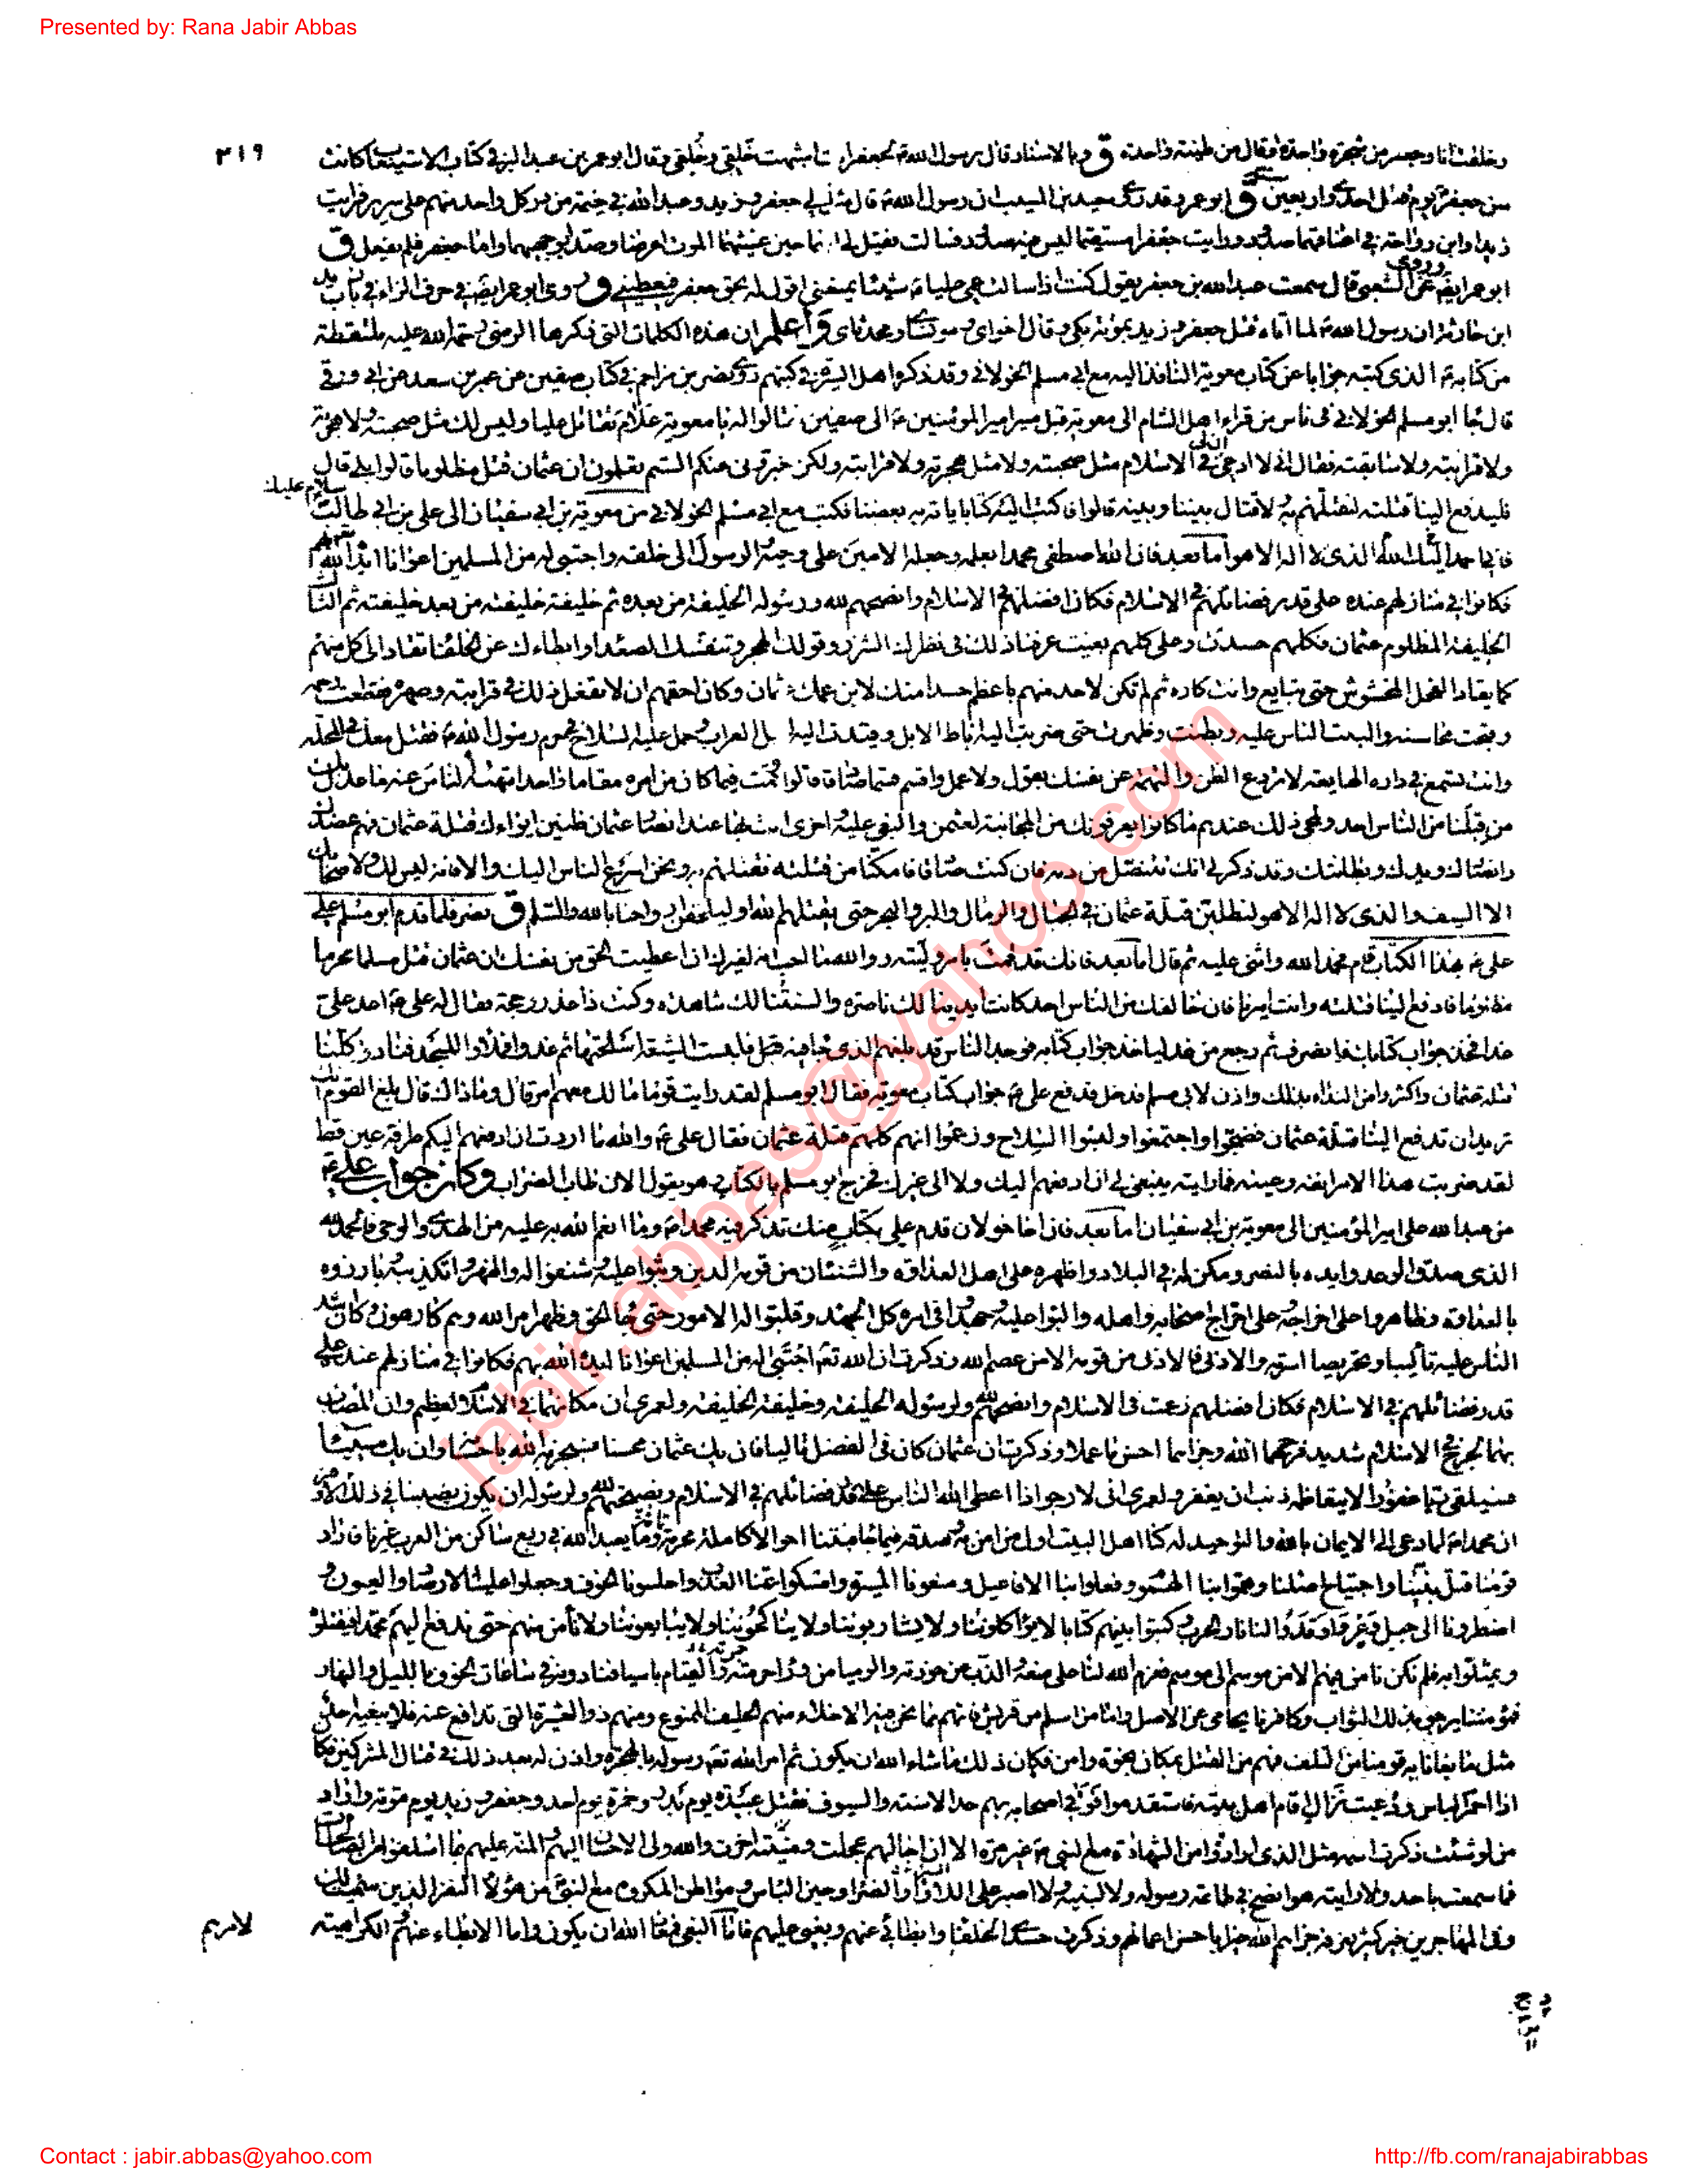 Presented by: Rana Jabir Abbas
٣١٩
وخلقت انا وجعفر من شجرة واحدة او قال من طينة واحدة ق وبالاسناد قال رسول الله لجعفر انت اشبهت خلقي وخلقي وقال ابو عمر بن عبد البر في كتاب الاستيعاب كانت
سن جعفر يوم قتل احدى واربعين سنة ق ابو عمر وقد روى سعيد بن المسيب ان رسول الله قال مثل لي جعفر وزيد وعبد الله في خيمة من در كل واحد منهم على سرير فرايت
زيدا وابن رواحة في اعناقهما صدودا ورايت جعفرا مستقيما ليس فيه صدود فسالت فقيل لي انهما حين غشيهما الموت اعرضا وصدا بوجههما واما جعفر فلم يفعل ق
ابو عمر ايضا وروى عن الشعبي قال سمعت عبد الله بن جعفر يقول كنت اذا سالت عمي عليا شيئا يمنعني اقول له بحق جعفر فيعطيني وروى ابو عمر ايضا في حرف الزاء في باب زيد
ابن حارثة ان رسول الله لما اتاه قتل جعفر وزيد بمؤتة بكى وقال اخواي ومونساي ومحدثاي واعلم ان هذه الكلمات التي ذكرها الرضي رحمة الله عليه ملتقطة
من كتابه الذي كتبه جوابا عن كتاب معوية النافذ اليه مع ابي مسلم الخولاني وقد ذكروا اهل السير في كتبهم روى نصر بن مزاحم في كتاب صفين عن عمر بن سعد عن ابي ورق
قال جاء ابو مسلم الخولاني في ناس من قراء اهل الشام الى معوية قبل مسير امير المؤمنين الى صفين فقالوا له يا معوية علام تقاتل عليا وليس لك مثل صحبته ولا هجرته
ولا قرابته ولا سابقته فقال اني لا ادعي ان لي في الاسلام مثل صحبته ولا مثل هجرته ولا قرابته ولكن خبروني عنكم الستم تعلمون ان عثمان قتل مظلوما قالوا بلى قال
فليدفع الينا قتلته لنقتلهم به ولا قتال بيننا وبينه قالوا فاكتب اليه كتابا ياته به بعضنا فكتب مع ابي مسلم الخولاني من معوية بن ابي سفيان الى علي بن ابي طالب سلام عليك
فاني احمد اليك الله الذي لا اله الا هو اما بعد فان الله اصطفى محمدا بعلمه وجعله الامين على وحيه والرسول الى خلقه واجتبى له من المسلمين اعوانا ايده الله بهم
فكانوا في منازلهم عنده على قدر فضائلهم في الاسلام فكان افضلهم في الاسلام وانصحهم لله ورسوله الخليفة من بعده ثم خليفة خليفته من بعد خليفته ثم الثالث
الخليفة المظلوم عثمان فكلهم حسدت وعلى كلهم بغيت عرفنا ذلك في نظرك الشزر وقولك الهجر وتنفسك الصعداء وابطاءك عن الخلفاء تقاد الى كل منهم
كما يقاد الفحل المخشوش حتى تبايع وانت كاره ثم لم تكن لاحد منهم باعظم حسدا منك لابن عمك عثمان وكان احقهم ان لا تفعل ذلك في قرابته وصهره فقطعت رحمه
وقبحت محاسنه والبت الناس عليه وبطنت وظهرت حتى ضربت اليه اباط الابل وقيدت اليه الخيل العراب وحمل عليه السلاح في حرم رسول الله فقتل معك في المحلة
وانت تسمع في داره الهايعة لا تردع الظن والتهمة عن نفسك بقول ولا عمل واقسم قسما صادقا لو قمت فيما كان من امره مقاما واحدا تنهنه الناس عنه ما عدل بك
من قبلنا من الناس احد ولمحى ذلك عندهم ما كانوا يعرفونك من المجانبة لعثمن والبغي عليه واخرى انت بها عند انصار عثمان ظنين ايواءك قتلة عثمان فهم عضدك
وانصارك ويدك وبطانتك وقد ذكر لي انك تتنصل من دمه فان كنت صادقا فامكنا من قتلته نقتلهم به ونحن اسرع الناس اليك والا فانه ليس لك ولاصحابك
الا السيف والذي لا اله الا هو لنطلبن قتلة عثمان في الجبال والرمال والبر والبحر حتى يقتلهم الله او لتلحقن ارواحنا بالله والسلام ق نصر فلما قدم ابو مسلم على
علي بهذا الكتاب قام فحمد الله واثنى عليه ثم قال اما بعد فانك قد قمت بامر وليته والله ما احب انه لغيرك ان اعطيت الحق من نفسك ان عثمان قتل مسلما محرما
مظلوما فادفع الينا قتلته وانت اميرنا فان خالفك من الناس احد كانت ايدينا لك ناصرة والسنتنا لك شاهدة وكنت ذا عذر وحجة فقال له علي اغد علي
غدا فخذ جواب كتابك فانصرف ثم رجع من غد لياخذ جواب كتابه فوجد الناس قد بلغهم الذي جاء فيه قبل فلبست الشيعة اسلحتها ثم غدوا فملاوا المسجد فنادوا كلنا
قتلة عثمان واكثروا من النداء بذلك واذن لابي مسلم فدخل فدفع علي جواب كتاب معوية فقال ابو مسلم لقد رايت قوما ما لك معهم امر قال وما ذاك قال بلغ القوم انك
تريد ان تدفع الينا قتلة عثمان فضجوا واجتمعوا ولبسوا السلاح وزعموا انهم كلهم قتلة عثمان فقال علي والله ما اردت ان ادفعهم اليكم طرفة عين قط
لقد ضربت هذا الامر انفه وعينه فما رايته ينبغي لي ان ادفعهم اليك ولا الى غيرك فخرج ابو مسلم بالكتاب وهو يقول الان طاب الضراب وكان جواب علي
من عبد الله علي امير المؤمنين الى معوية بن ابي سفيان اما بعد فان اخا خولان قدم علي بكتاب منك تذكر فيه محمدا وما انعم الله به عليه من الهدى والوحي فالحمد لله
الذي صدقه الوعد وايده بالنصر ومكن له في البلاد واظهره على اهل العداوة والشنئان من قومه الذين وثبوا عليه وشنفوا له واظهروا تكذيبه وبارزوه
بالعداوة وظاهروا على اخراجه وعلى اخراج اصحابه واهله والبوا عليه وجهدوا في امره كل الجهد وقلبوا له الامور حتى جاء الحق وظهر امر الله وهم كارهون وكان اشد
الناس عليه تاليبا وتحريضا اسرته والادنى فالادنى من قومه الا من عصم الله وذكرت ان الله تعالى اجتبى له من المسلمين اعوانا ايده الله بهم فكانوا في منازلهم عنده على
قدر فضائلهم في الاسلام فكان افضلهم زعمت في الاسلام وانصحهم لله ولرسوله الخليفة وخليفة الخليفة ولعمري ان مكانهما في الاسلام لعظيم وان المصاب
بهما لجرح في الاسلام شديد فرحمهما الله وجزاهما احسن ما عملا وذكرت ان عثمان كان في الفضل تاليا فان يك عثمان محسنا فسيجزيه الله باحسانه وان يك مسيئا
فسيلقى ربا غفورا لا يتعاظمه ذنب ان يغفره ولعمري اني لارجو اذا اعطى الله الناس على قدر فضائلهم في الاسلام ونصيحتهم لله ولرسوله ان يكون نصيبنا في ذلك الاوفر
ان محمدا لما دعى الى الايمان بالله والتوحيد له كنا اهل البيت اول من امن به وصدقه فيما جاء فبتنا احوالا كاملة مجرمة تامة وما يعبد الله في ربع ساكن من العرب غيرنا فاراد
قومنا قتل نبينا واجتياح اصلنا وهموا بنا الهموم وفعلوا بنا الافاعيل ومنعونا الميرة وامسكوا عنا العذب واحلسونا الخوف وجعلوا علينا الارصاد والعيون و
اضطرونا الى جبل وعر واوقدوا لنا نار الحرب وكتبوا بينهم كتابا لا يؤاكلوننا ولا يشاربوننا ولا يناكحوننا ولا يبايعوننا ولا نأمن منهم حتى ندفع اليهم محمدا فيقتلوه
ويمثلوا به فلم نكن نامن فيهم الا من موسم الى موسم فعزم الله لنا على منعه والذب عن حوزته والرميا من وراء حرمته والقيام باسيافنا دونه في ساعات الخوف بالليل والنهار
فمؤمننا يرجو بذلك الثواب وكافرنا يحامي عن الاصل واما من اسلم من قريش فانهم مما نحن فيه اخلاء منهم الحليف الممنوع ومنهم ذو العشيرة التي تدافع عنه فلا يبغيه احد
مثل ما بغانا به قومنا من التلف فهم من القتل بمكان نجوة وامن فكان ذلك ما شاء الله ان يكون ثم امر الله تعالى رسوله بالهجرة واذن له بعد ذلك في قتال المشركين فكان
اذا احمر الباس ودعيت نزال اقام اهل بيته فاستقدموا فوقى اصحابه بهم حد الاسنة والسيوف فقتل عبيدة يوم بدر وحمزة يوم احد وجعفر وزيد يوم مؤتة واراد
من لو شئت ذكرت اسمه مثل الذي ارادوا من الشهادة مع النبي غير مرة الا ان اجالهم عجلت ومنيته اخرت والله ولي الاحسان اليهم والمنة عليهم بما اسلفوا من الصالحات
فما سمعت باحد ولا رايته هو انصح في طاعة رسوله ولا لنبيه ولا اصبر على اللاواء والضراء وحين الباس ومواطن المكروه مع النبي من هؤلاء النفر الذين سميت لك
وفي المهاجرين خير كثير نعرفه جزاهم الله خيرا باحسن اعمالهم وذكرت حسدي الخلفاء وابطائي عنهم وبغيي عليهم فاما البغي فمعاذ الله ان يكون واما الابطاء عنهم والكراهية
لامرهم
jabir.abbas@yahoo.com
Contact : jabir.abbas@yahoo.com
http://fb.com/ranajabirabbas